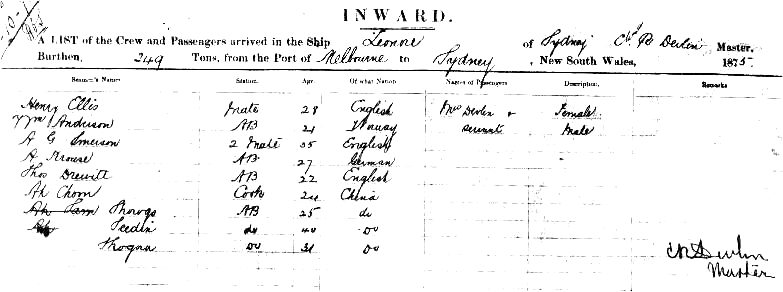 INWARD.
A LIST of the Crew and Passengers arrived in the Ship Leonore of Sydney Chs B Devlin Master.
Burthen, 249 Tons, from the Port of Melbourne to Sydney, New South Wales, 1875
Seaman's Names Station. Age. Of what Nation Names of Passengers Description. Remarks
Henry Ellis Mate 28 English Mrs Devlin & Female
Wm Anderson AB 21 Norway servant Male
A G Emerson 2 Mate 35 English
A Krouse AB 27 German
Thos Drewitt AB 22 English
Ah Choon Cook 24 China
Ah Sam AB 25 do
do 40 do
do 31 do
Devlin
Master